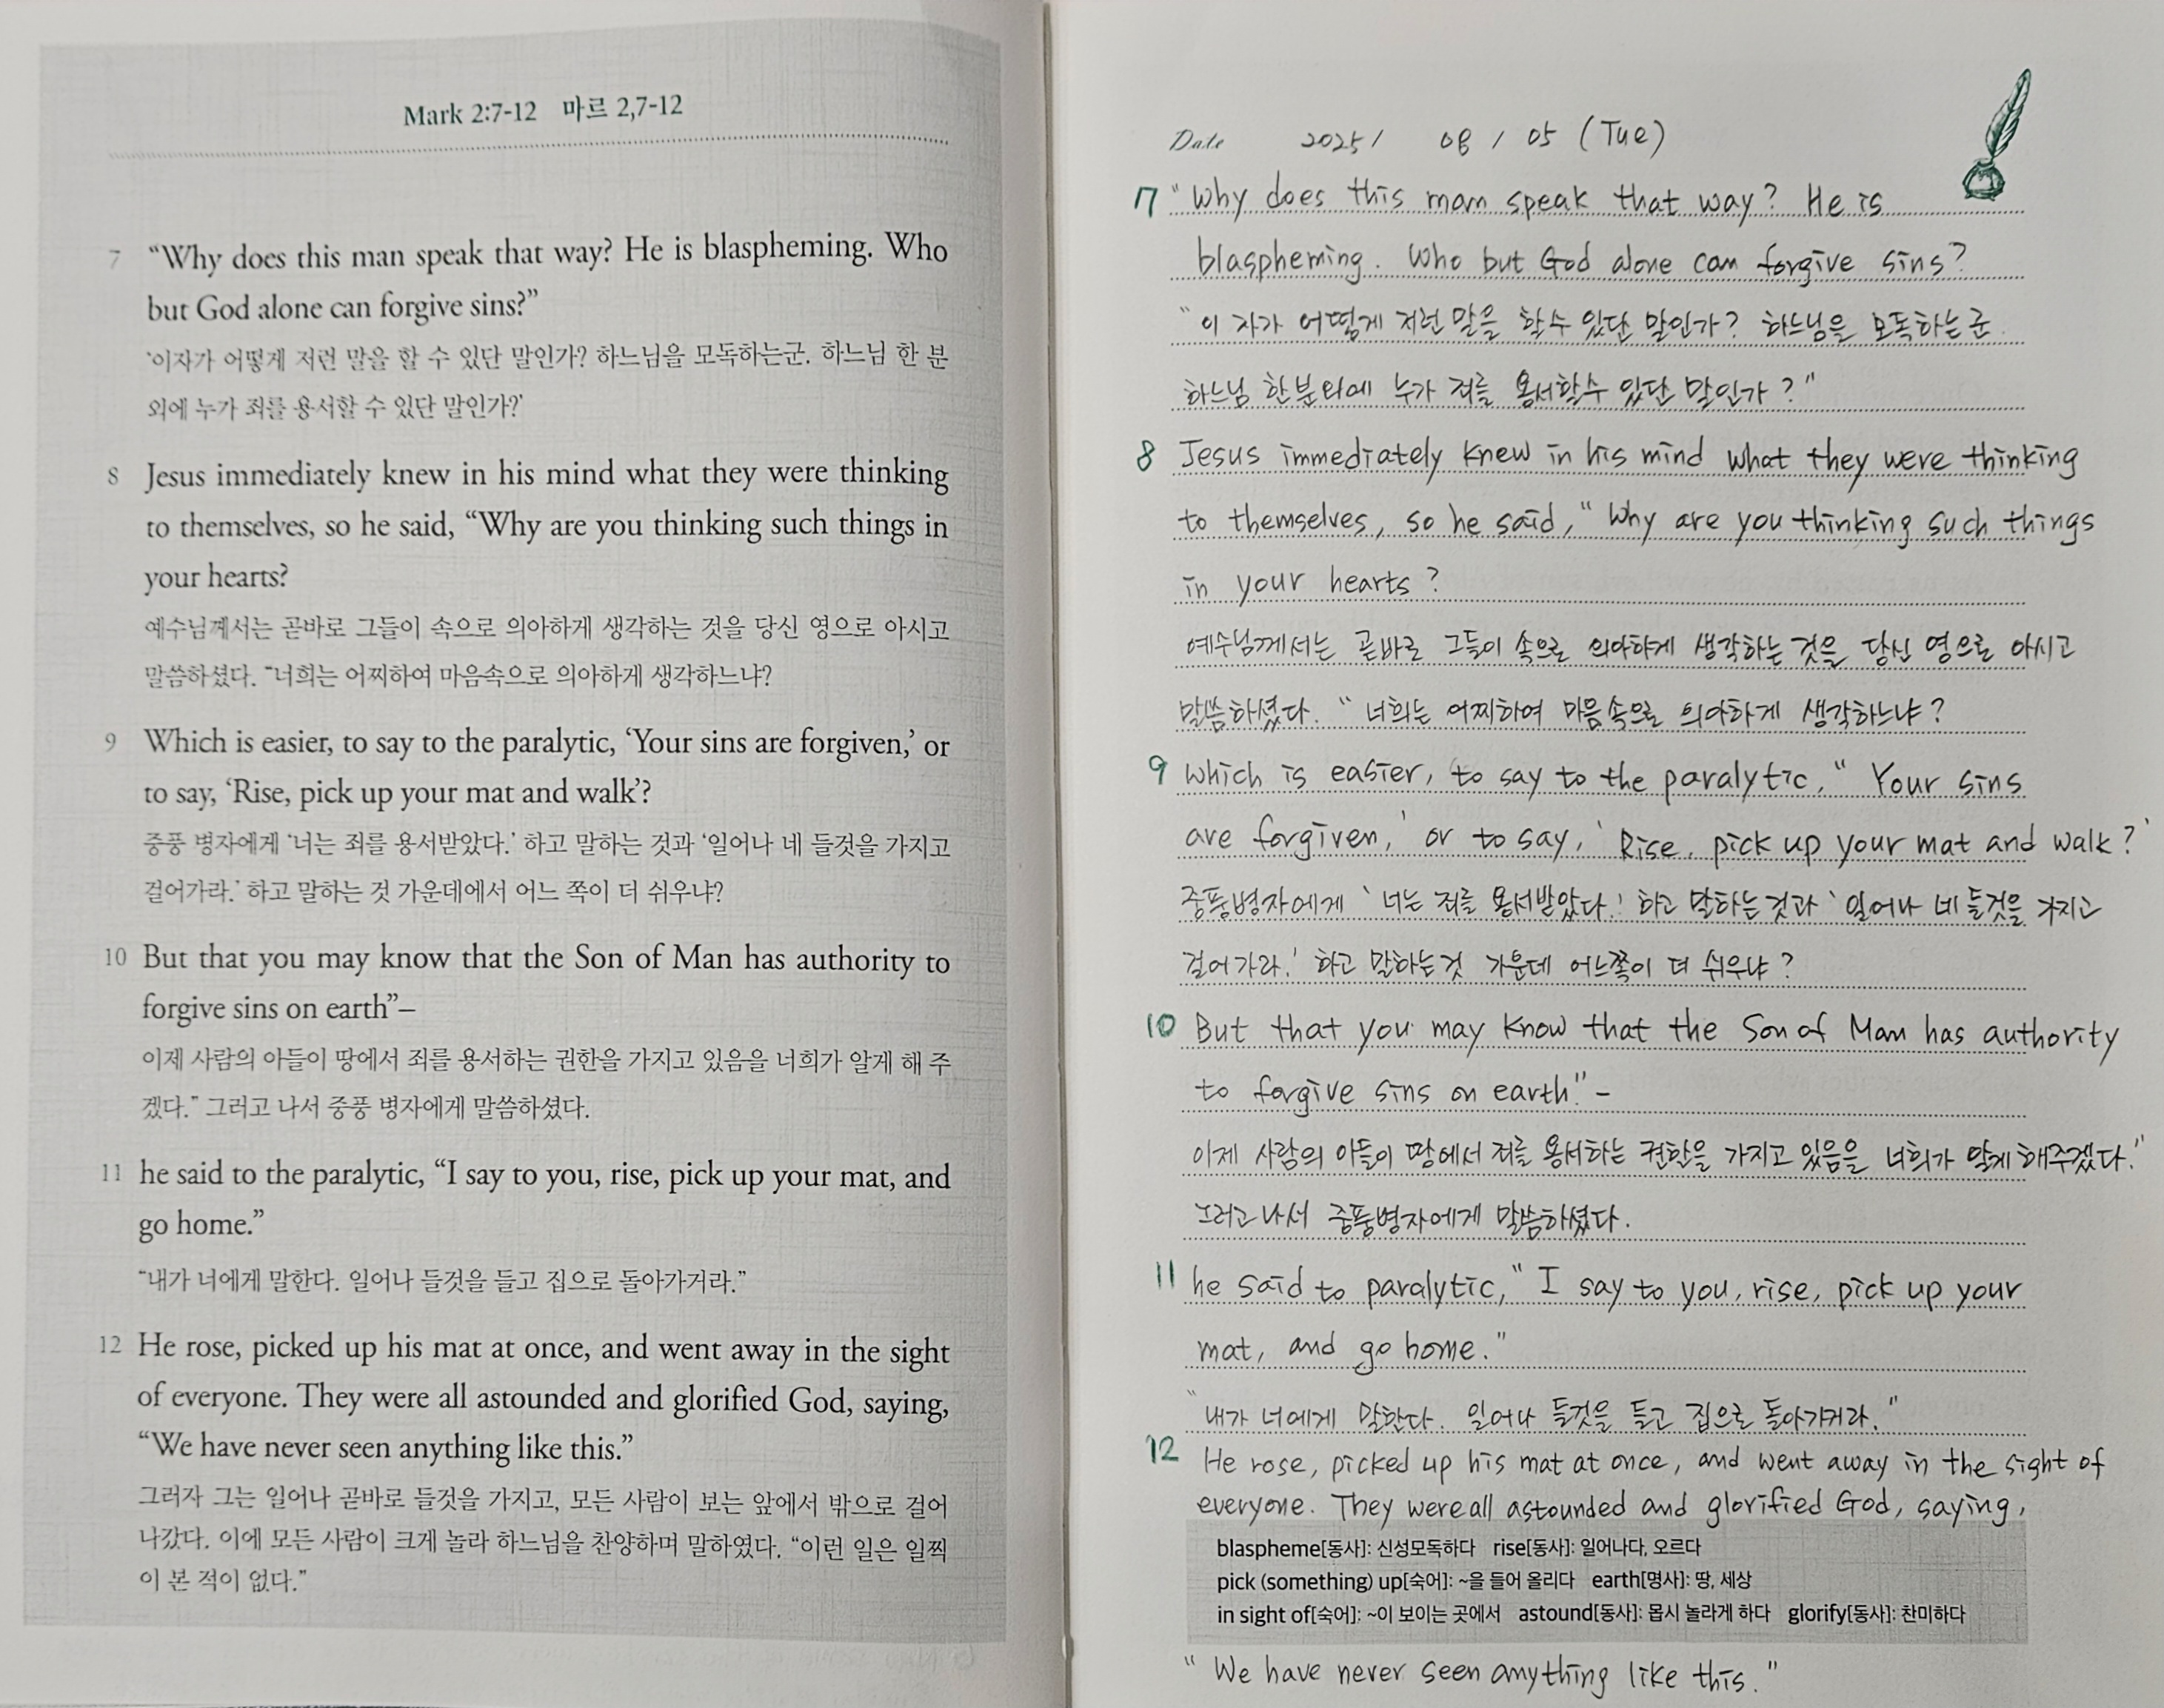 Mark 2:7-12 마르 2,7-12
7 “Why does this man speak that way? He is blaspheming. Who
but God alone can forgive sins?”
‘이자가 어떻게 저런 말을 할 수 있단 말인가? 하느님을 모독하는군. 하느님 한 분
외에 누가 죄를 용서할 수 있단 말인가?’
8 Jesus immediately knew in his mind what they were thinking
to themselves, so he said, “Why are you thinking such things in
your hearts?
예수님께서는 곧바로 그들이 속으로 의아하게 생각하는 것을 당신 영으로 아시고
말씀하셨다. “너희는 어찌하여 마음속으로 의아하게 생각하느냐?
9 Which is easier, to say to the paralytic, ‘Your sins are forgiven,’ or
to say, ‘Rise, pick up your mat and walk’?
중풍 병자에게 ‘너는 죄를 용서받았다.’ 하고 말하는 것과 ‘일어나 네 들것을 가지고
걸어가라.’ 하고 말하는 것 가운데에서 어느 쪽이 더 쉬우냐?
10 But that you may know that the Son of Man has authority to
forgive sins on earth”–
이제 사람의 아들이 땅에서 죄를 용서하는 권한을 가지고 있음을 너희가 알게 해 주
겠다.” 그러고 나서 중풍 병자에게 말씀하셨다.
11 he said to the paralytic, “I say to you, rise, pick up your mat, and
go home.”
“내가 너에게 말한다. 일어나 들것을 들고 집으로 돌아가거라.”
12 He rose, picked up his mat at once, and went away in the sight
of everyone. They were all astounded and glorified God, saying,
“We have never seen anything like this.”
그러자 그는 일어나 곧바로 들것을 가지고, 모든 사람이 보는 앞에서 밖으로 걸어
나갔다. 이에 모든 사람이 크게 놀라 하느님을 찬양하며 말하였다. “이런 일은 일찍
이 본 적이 없다.”
Date 2025 / 08 / 05 (Tue)
7 "Why does this man speak that way? He is
blaspheming. Who but God alone can forgive sins?
"이 자가 어떻게 저런 말을 할수 있단 말인가? 하느님을 모독하는군.
하느님 한분외에 누가 죄를 용서할수 있단 말인가?"
8 Jesus immediately knew in his mind what they were thinking
to themselves, so he said, "Why are you thinking such things
in your hearts?
예수님께서는 곧바로 그들이 속으로 의아하게 생각하는 것을 당신 영으로 아시고
말씀하셨다. "너희는 어찌하여 마음속으로 의아하게 생각하느냐?
9 Which is easier, to say to the paralytic, "Your sins
are forgiven,' or to say, 'Rise, pick up your mat and walk?'
중풍병자에게 '너는 죄를 용서받았다.' 하고 말하는것과 '일어나 네 들것을 가지고
걸어가라.' 하고 말하는것 가운데 어느쪽이 더 쉬우냐?
10 But that you may know that the Son of Man has authority
to forgive sins on earth." –
이제 사람의 아들이 땅에서 죄를 용서하는 권한을 가지고 있음을 너희가 알게 해주겠다."
그러고나서 중풍병자에게 말씀하셨다.
11 he said to paralytic, "I say to you, rise, pick up your
mat, and go home."
"내가 너에게 말한다. 일어나 들것을 들고 집으로 돌아가거라."
12 He rose, picked up his mat at once, and went away in the sight of
everyone. They were all astounded and glorified God, saying,
blaspheme[동사]: 신성모독하다 rise[동사]: 일어나다, 오르다
pick (something) up[숙어]: ~을 들어 올리다 earth[명사]: 땅, 세상
in sight of[숙어]: ~이 보이는 곳에서 astound[동사]: 몹시 놀라게 하다 glorify[동사]: 찬미하다
"We have never seen anything like this."